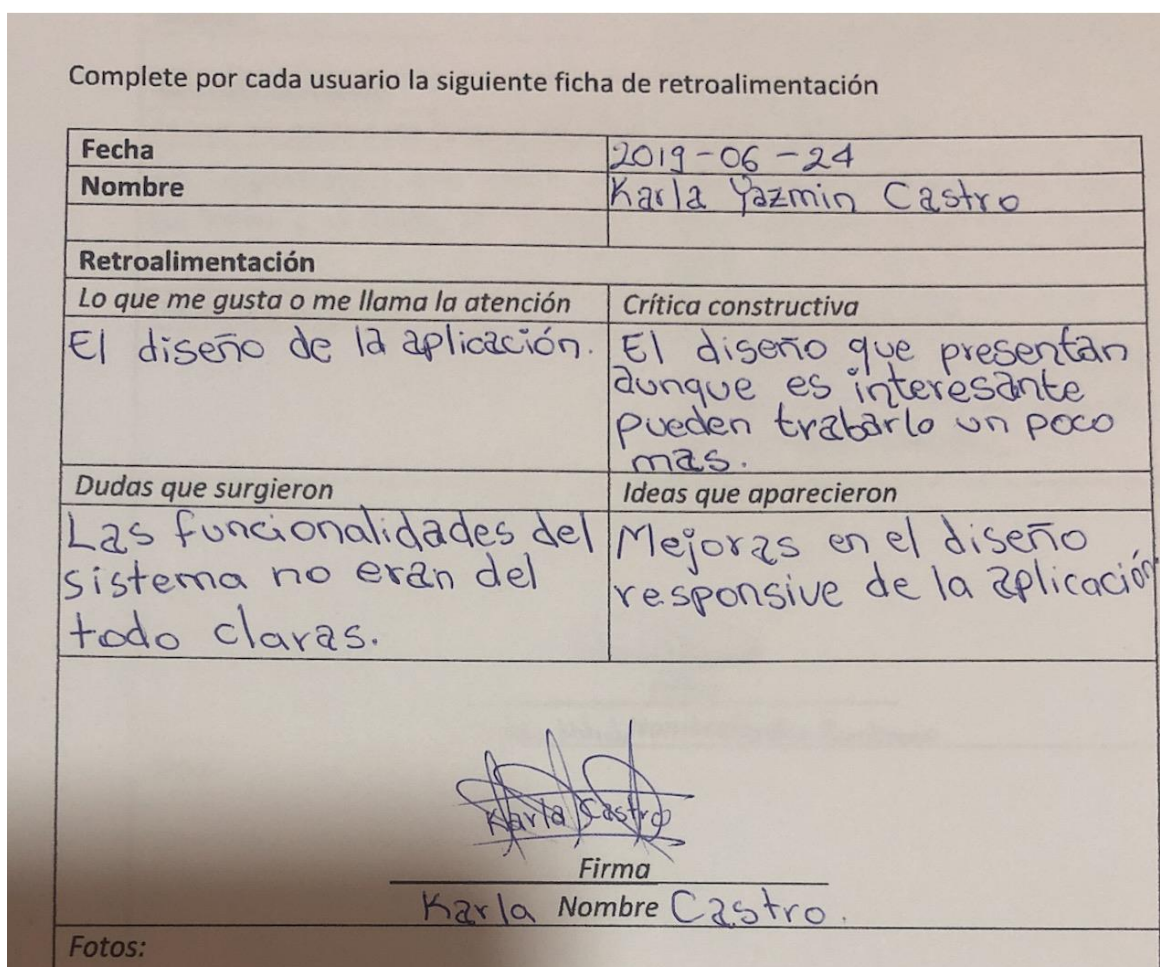 Complete por cada usuario la siguiente ficha de retroalimentación
Fecha 2019-06-24
Nombre Karla Yazmin Castro
Retroalimentación
Lo que me gusta o me llama la atención
El diseño de la aplicación.
Crítica constructiva
El diseño que presentan
aunque es interesante
pueden trabarlo un poco
mas.
Dudas que surgieron
Las funcionalidades del
sistema no eran del
todo claras.
Ideas que aparecieron
Mejoras en el diseño
responsive de la aplicación
Karla Castro
Firma
Karla Nombre Castro.
Fotos: